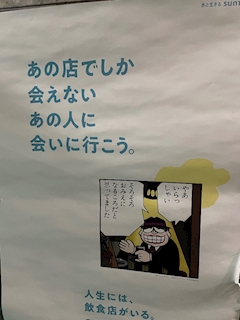 水と生きる SUNT
あの店でしか
会えない
あの人に
会いに行こう。
やあ
いらっ
しゃい
そろそろ
おみえに
なるころだと
思ってました
人生には、
飲食店がいる。